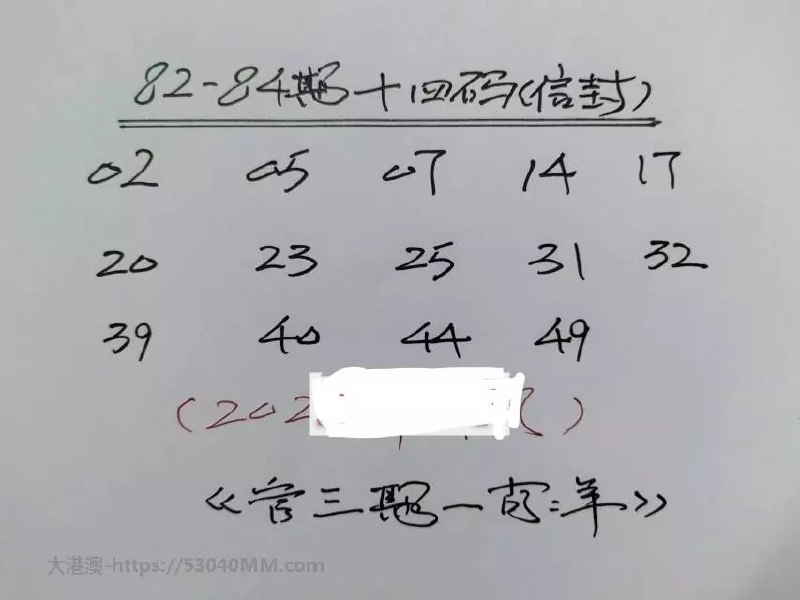 82-84期十四码(信封)
02 05 07 14 17
20 23 25 31 32
39 40 44 49
(202
《管三期一肖:羊》
大港澳-https://53040MM.com